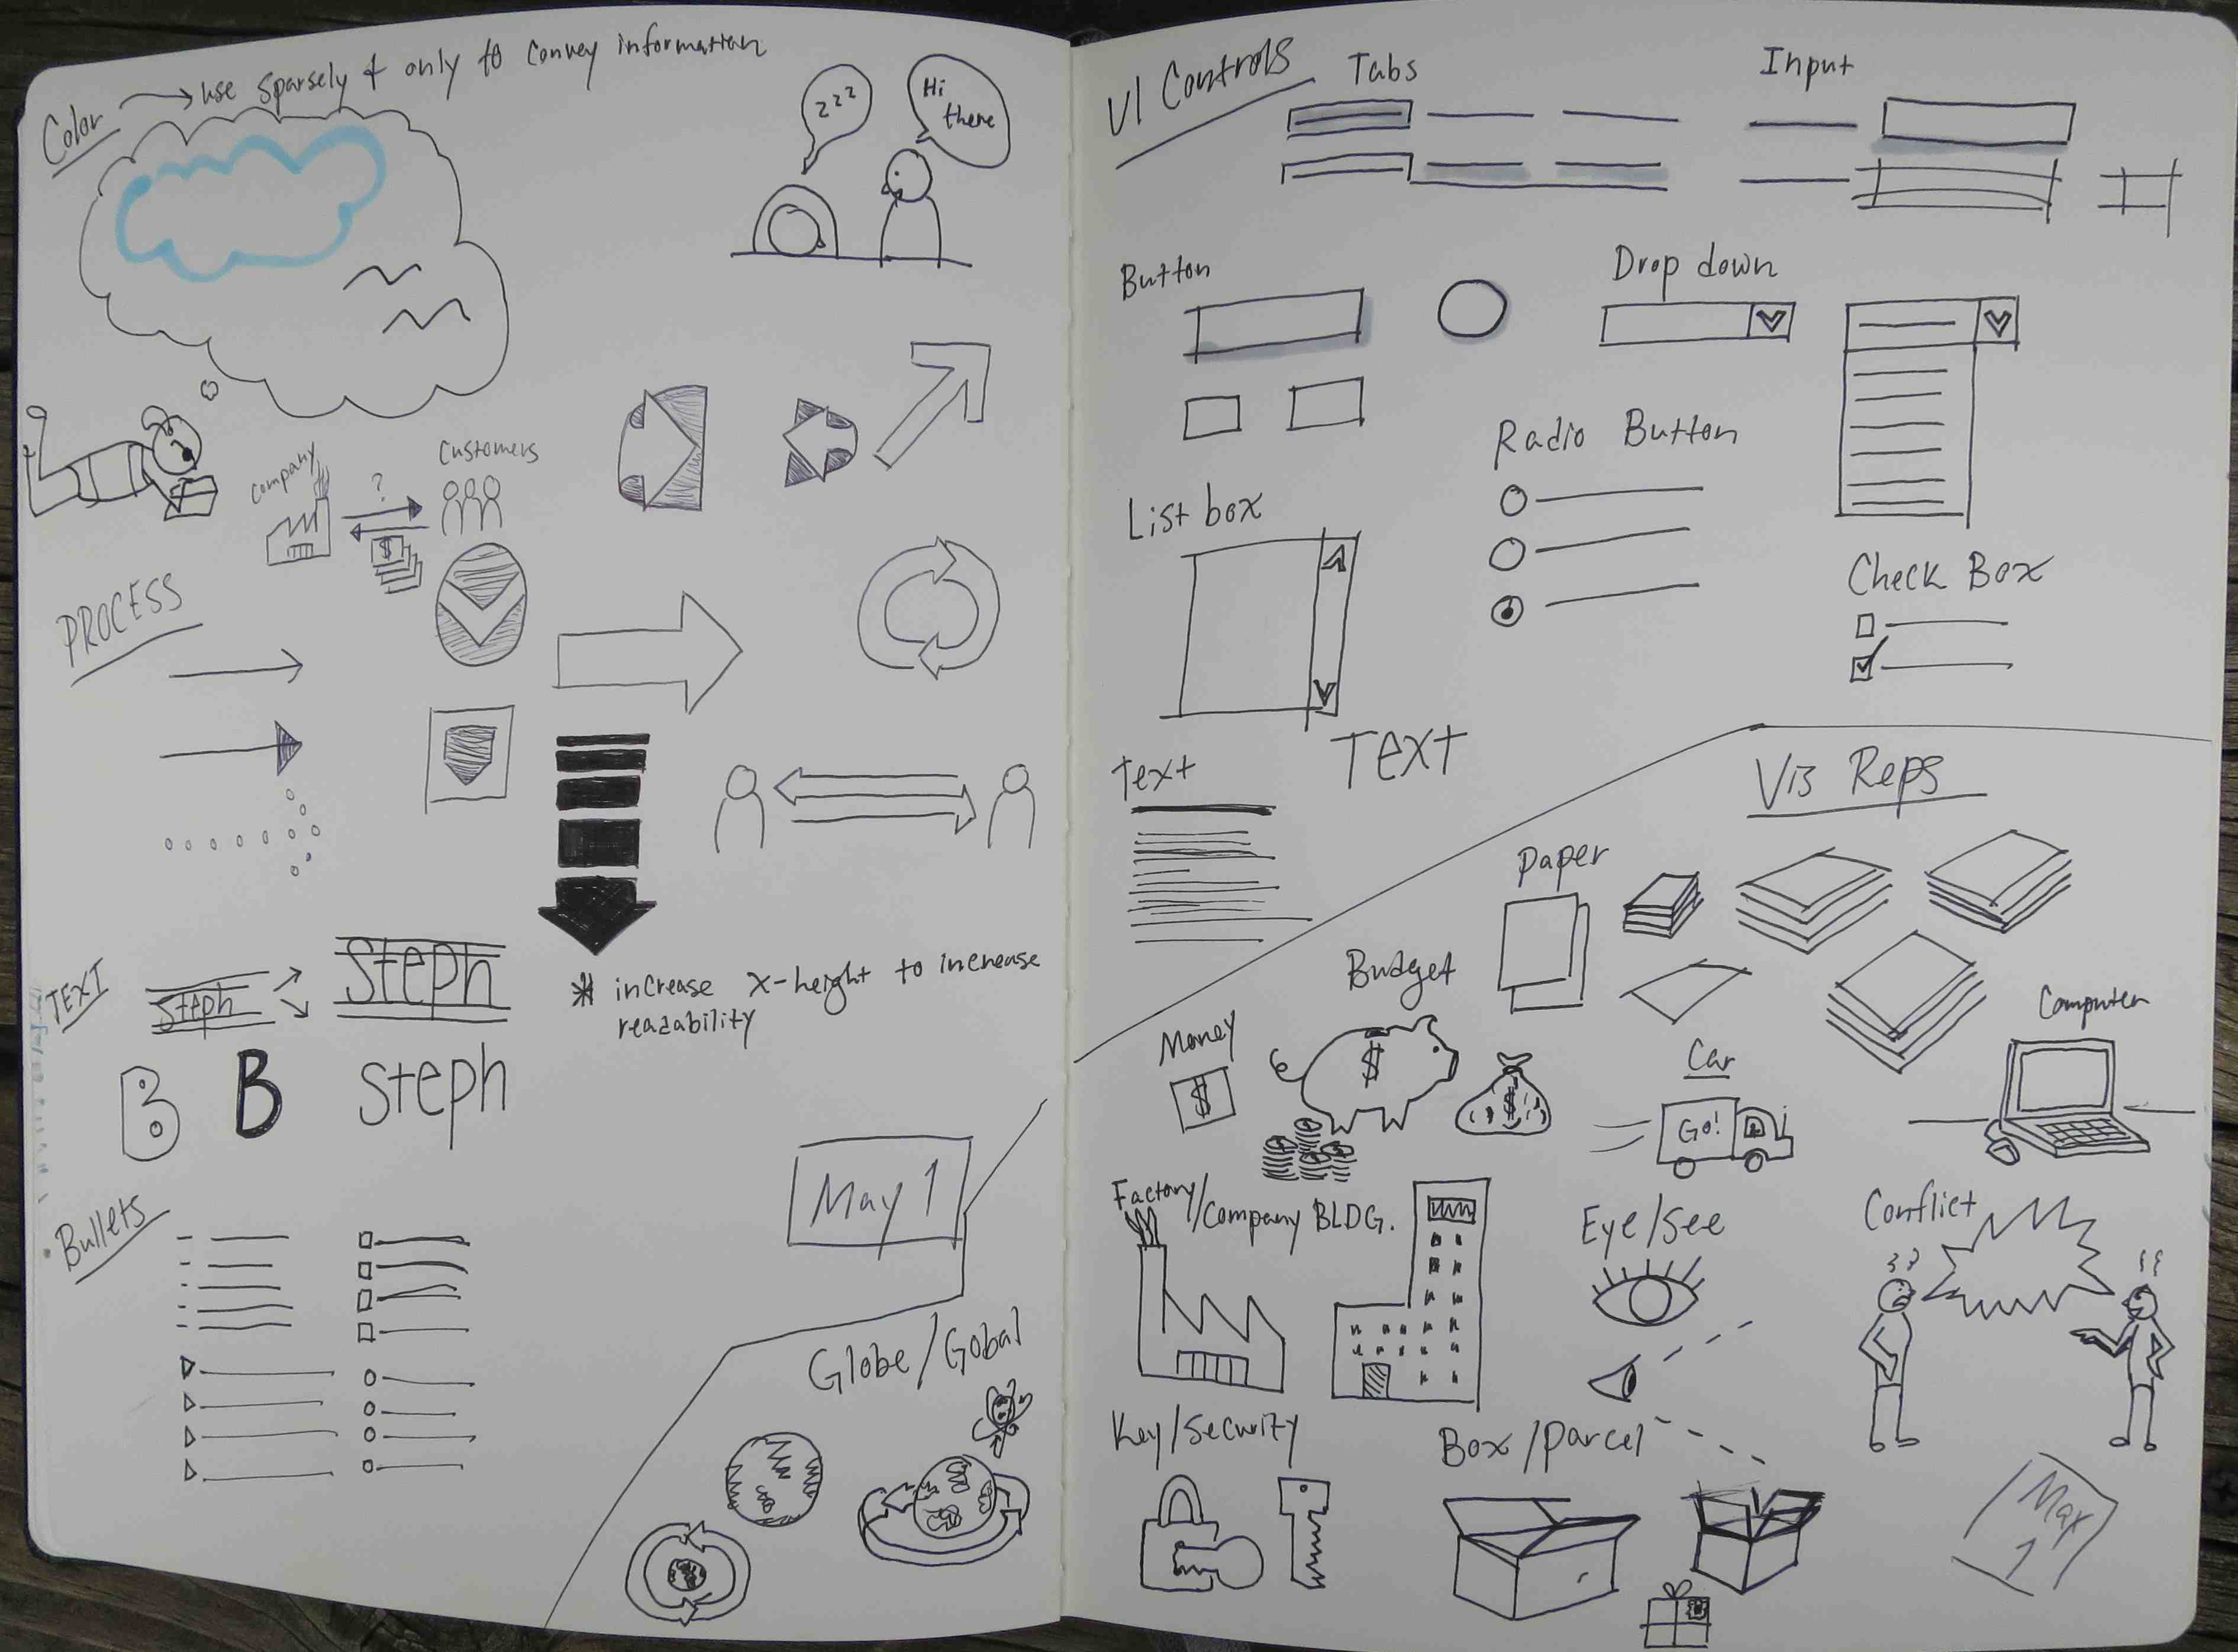 Color → use sparsely & only to convey information
zzz
Hi
there
Company
?
Customers
$
PROCESS
TEXT
Steph
Steph
* increase x-height to increase
readability
B
B
Steph
May 1
Bullets
Globe/Gobal
UI Controls
Tabs
Input
Button
Drop down
Radio Button
List box
Check Box
Text
Text
Vis Reps
Paper
Budget
Money
$
$
$
Car
Go!
Computer
Factory/Company BLDG.
Eye/See
Conflict
Key/Security
Box/Parcel
May
1